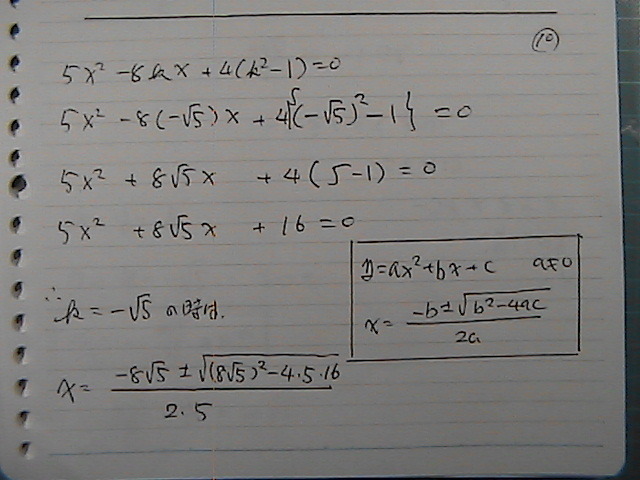 (10)
5x² - 8kx + 4(k²-1) = 0
5x² - 8(-√5)x + 4{(-√5)² - 1} = 0
5x² + 8√5x + 4(5-1) = 0
5x² + 8√5x + 16 = 0
y = ax² + bx + c a≠0
x = (-b ± √(b²-4ac)) / 2a
∴ k = -√5 の時は.
x = (-8√5 ± √((8√5)² - 4・5・16)) / 2・5